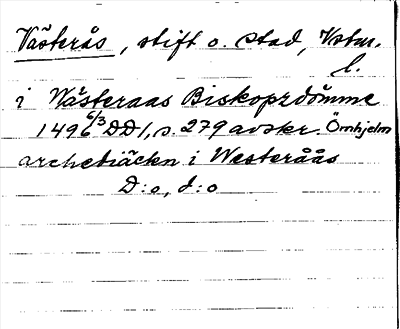 Västerås, stift o. stad, Vstm.
l.
i Wästeraas Biskopzdömme
1496 6/3 DD1, s. 279 avskr. Örnhjelm
archediäcken i Westeråås
D:o, d:o